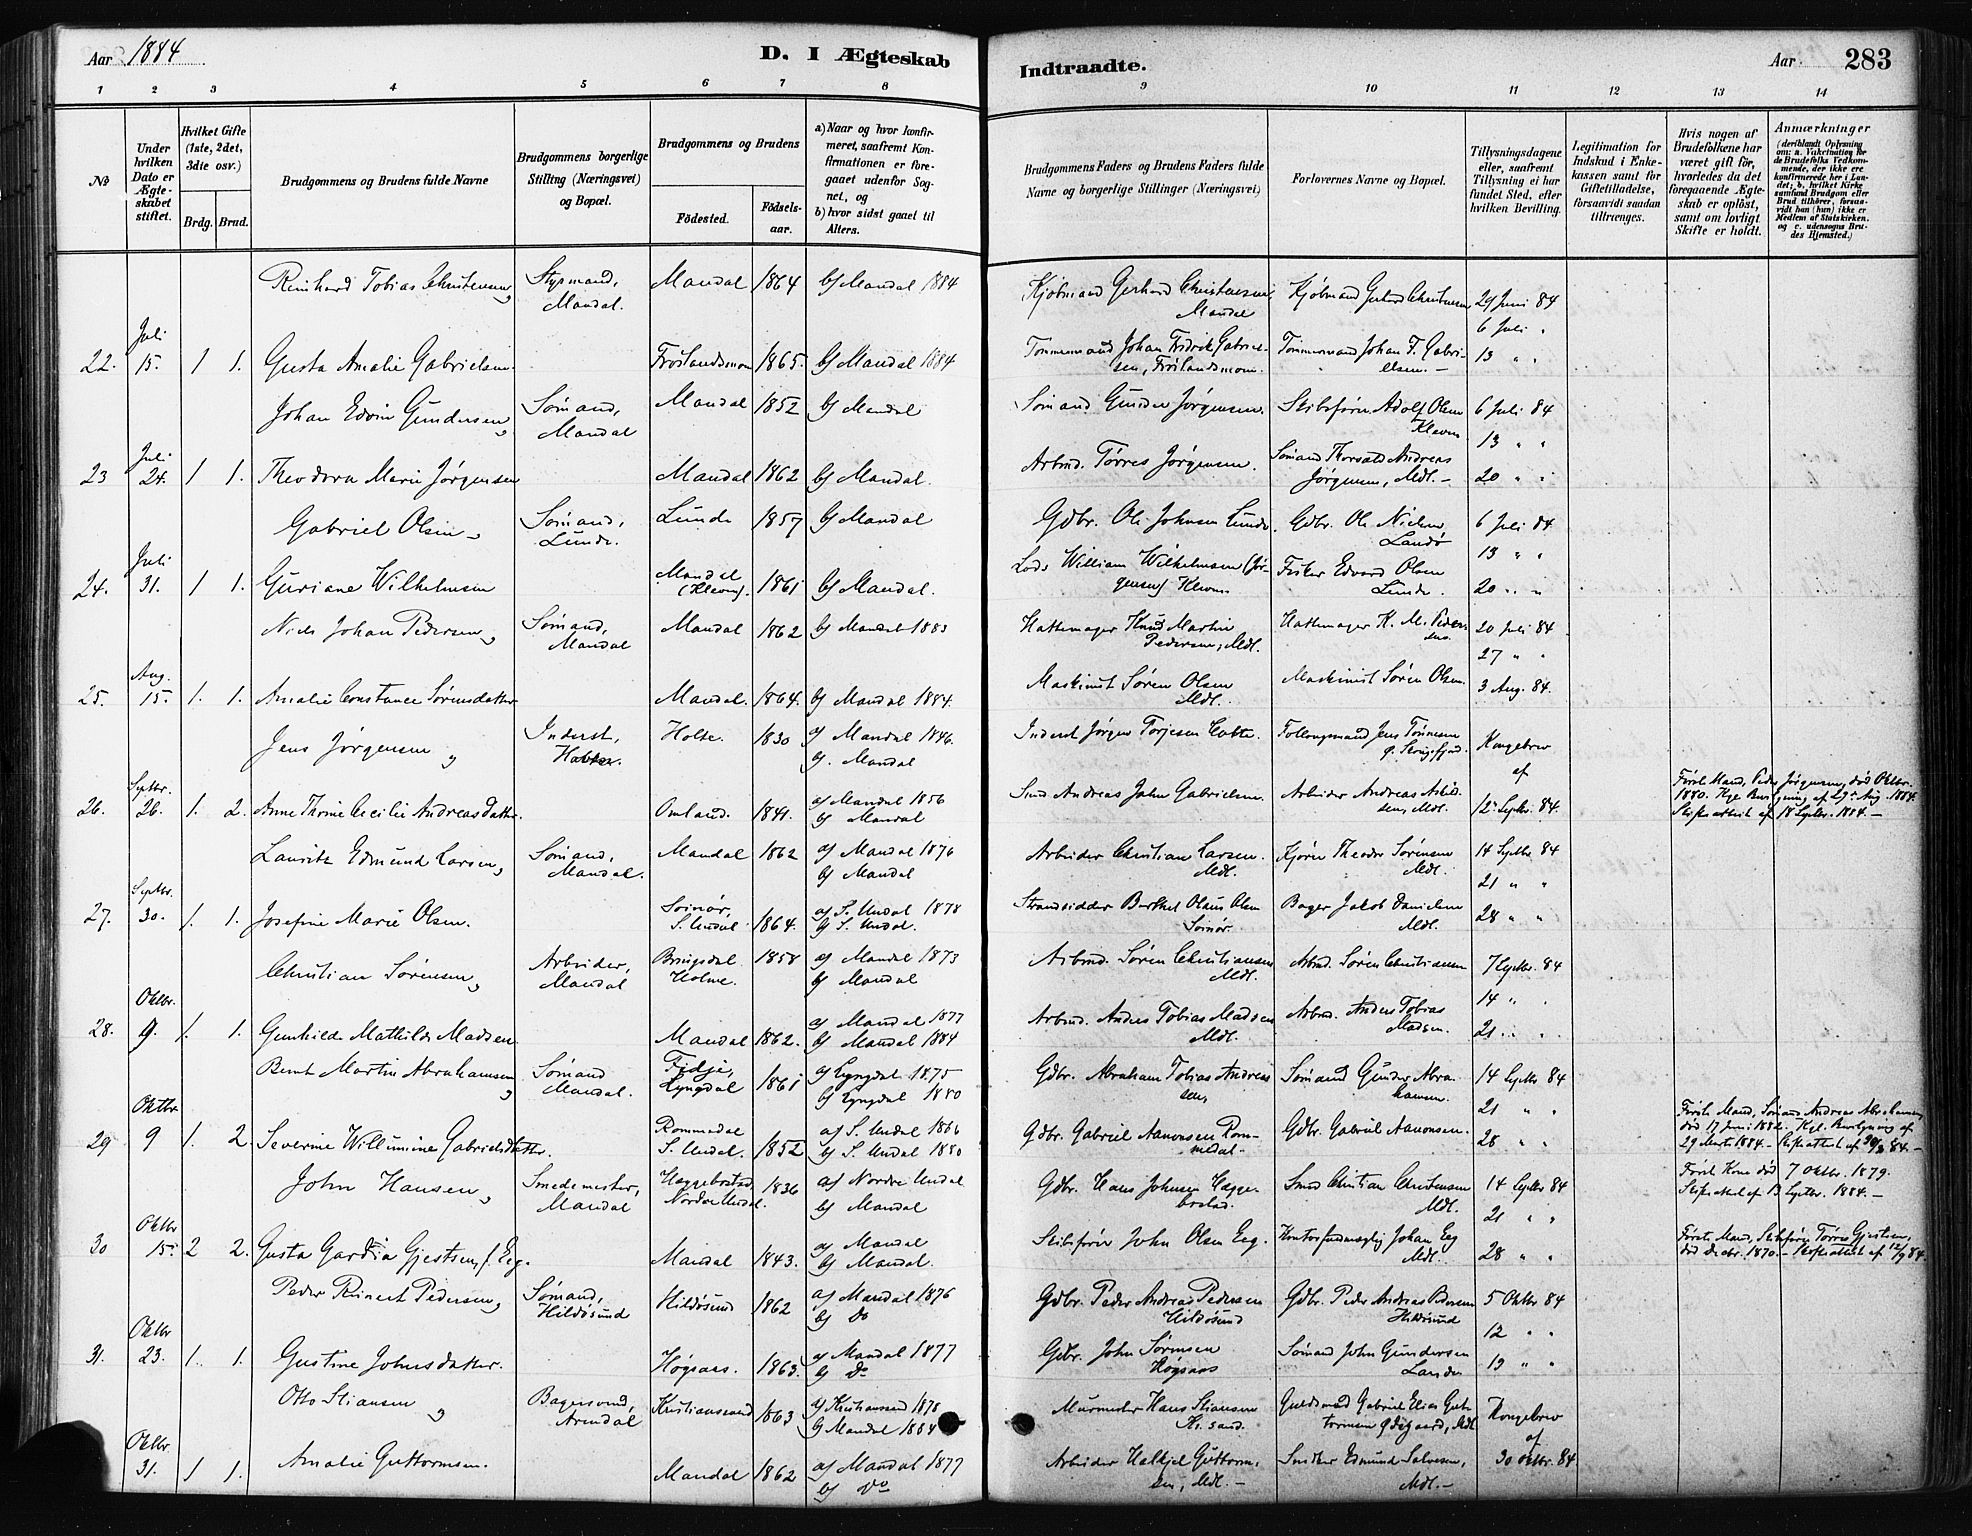 Aar 1884
D. I Ægteskab
Indtraadte.
Aar
283
1 2 3 4 5 6 7 8 9 10 11 12 13 14
No
Under hvilken Dato er Ægteskabet stiftet.
Hvilket Gifte (1ste, 2det, 3die osv.)
Brdg. Brud.
Brudgommens og Brudens fulde Navne
Brudgommens borgerlige Stilling (Næringsvei) og Bopæl.
Brudgommens og Brudens
Födested.
Födsels-aar.
a) Naar og hvor konfirmeret, saafremt Konfirmationen er foregaaet udenfor Sognet, og
b) hvor sidst gaaet til Alters.
Brudgommens Faders og Brudens Faders fulde Navne og borgerlige Stillinger (Næringsvei)
Forlovernes Navne og Bopæl.
Tillysningsdagene eller, saafremt Tillysning ei har fundet Sted, efter hvilken Bevilling.
Legitimation for Indskud i Enkekassen samt for Giftetilladelse, forsaavidt saadan tiltrænges.
Hvis nogen af Brudefolkene har været gift för, hvorledes da det foregaaende Ægteskab er oplöst, samt om lovligt Skifte er holdt.
Anmærkninger (deriblandt Oplysning om: a. Vakcination for de Brudefolks Vedkommende, der ikke ere konfirmerede her i Landet; b. hvilket Kirkesamfund Brudgom eller Brud tilhörer, forsaavidt han (hun) ikke er Medlem af Statskirken. og c. udensogns Brudes Hjemsted.)
Reinhard Tobias Christensen, Styrmand, Mandal. Mandal 1864 b) Mandal 1884 Kjøbmand Gerhard Christensen, Mandal Kjøbmand Gerhard Christensen 29 Juni 84
6 Juli "
22. Juli 15. 1 1. Gusta Amalie Gabrielsen. Frøslandsmoen 1865. b) Mandal 1884 Tømmermand Johan Fredrik Gabrielsen, Frøslandsmoen. Tømmermand Johan F. Gabrielsen. 13 " "
Johan Edvin Gundersen, Sømand, Mandal Mandal 1852 b) Mandal Sømand Gunder Jørgensen. Skibsfører Adolf Olsen Kleven 6 Juli 84
13 " "
23 Juli 24. 1 1. Theodora Marie Jørgensen Mandal 1862 b) Mandal. Arbmd. Tørres Jørgensen. Sømand Thorvald Andreas Jørgensen, Mdl. 20 " "
Gabriel Olsen, Sømand, Lunde. Lunde 1857 b) Mandal Gdbr. Ole Johnsen Lunde. Gdbr. Ole Nielsen Landø 6 Juli 84
13 " "
24. Juli 31. 1 1. Guriane Wilhelmsen Mandal (Kleven). 1861 b) Mandal. Lods William Wilhelmsen (Jørgensen) Kleven. Fisker Edvard Olsen Lunde. 20 " "
Niels Johan Pedersen, Sømand, Mandal Mandal 1862 b) Mandal 1883 Hattemager Knud Martin Pedersen, Mdl. Hattemager K. M. Pedersen. 20 Juli 84
27 " "
25. Aug. 15. 1. 1. Amalie Constance Sørensdatter Mandal. 1864. b) Mandal 1884. Maskinist Søren Olsen Mdl. Maskinist Søren Olsen. 3 Aug. 84.
Jens Jørgensen, Inderst, Holte. 1830 a) Mandal 1846. b). Mandal Inderst Jørgen Torjesen Holte. Jens Tønnesen Kongebrev
af
26. Septbr. 26. 1. 2. Anne Thrine Cecilie Andreasdatter. Omland. 1841. a) Mandal 1856 b) Mandal Smed Andreas John Gabrielsen. Arbeider Andreas Mdl. 12te Septbr. 84. Første Mand, Peder Jørgensen, død Oktbr. 1880. Kgl. Bevilgning af 29de Aug. 1884. Skifteattest af 18 Septbr. 1884.
Lauritz Edmund Larsen, Sømand, Mandal. Mandal 1862 a) Mandal 1876 b) Mandal Arbeider Christian Larsen. Mdl. Kjører Theodor Sørensen Mdl. 14 Septbr 84
21 " "
27. Septbr. 30. 1. 1. Josefine Marie Olsen. S. Undal. 1864. a) S. Undal 1878 b) S. Undal. Strandsidder Berthel Olaus Olsen Bager Jakob Danielsen Mdl. 28 " "
Christian Sørensen, Arbeider, Mandal Bringsdal Holme. 1858 a) Mandal 1873 b) Mandal Arbmd. Søren Christiansen Mdl. Arbmd. Søren Christiansen 7 Septbr. 84
14 " "
28. Oktbr. 9. 1. 1. Gunhilde Mathilde Madsen. Mandal 1862. a) Mandal 1877 b) Mandal 1884 Arbmd. Anders Tobias Madsen Mdl. Arbmd. Anders Tobias Madsen. 21 " "
Bernt Martin Abrahamsen, Sømand Mandal. Fedje, Lyngdal 1861 a) Lyngdal 1875 b) Lyngdal 1880 Gdbr. Abraham Tobias Andreassen, Sømand Gunder Abrahamsen. 14 Septbr 84
21 " "
29 Oktbr. 9 1. 2 Severine Willumine Gabrielsdatter. Rommedal S. Undal. 1852 a) S. Undal 1866 b) S. Undal 1880 Gdbr. Gabriel Aanonsen Rommedal Gdbr. Gabriel Aanonsen. 28 " " Første Mand, Sømand Andreas Abrahamsen, død 17 Juni 1882. Kgl. Bevilgning af 29 Marts 1884. Skifteattest af
John Hansen, Smedemester, Mandal Heggebostad, Nordre Undal. 1836 a) Nordre Undal b) Mandal Gdbr. Hans Johnsen Heggebostad. Smed Christian Christensen Mdl. 14 Septbr 84 Første Kone død 7 Oktbr. 1879. Skifteattest af 13 Septbr. 1884.
21 " "
30 Oktbr 15. 2 2. Gusta Gjestsen, f. Eeg. Mandal 1843. a) Mandal b) Mandal. Skibsfører John Olsen Eeg. Kontorfuldmægtig Johan Eeg Mdl. 28 " " Første Mand, Skibsfører Tørres Gjestsen, død Decbr. 1870. Skifteattest af 12/9 84.
Peder Reinert Pedersen, Sømand, Hildøsund Hildøsund 1862 a) Mandal 1876 b) Do Gdbr. Peder Andreas Pedersen Hildøsund Gdbr. Peder Andreas Hildøsund 5 Oktbr 84
12 " "
31. Oktbr 23. 1. 1. Gustine Johnsdatter. Høgsaas. 1863. a) Mandal 1877 b) Do Gdbr. John Sørensen Høgsaas Sømand John Gundersen Lande 19 " "
Otto Stiansen, Bagersvend, Arendal Kristianssand 1863 a) Kristianssand 1878 b) Mandal 1884 Murmester Hans Stiansen Kr. sand. Guldsmed Gabriel Elias Guttormsen Ødegaard, Mdl Kongebrev
af
Oktbr. 31. 1 1. Amalie Guttormsen. Mandal 1862 a) Mandal 1877 b) Do Arbeider Halkjel Guttormsen, Mdl. Snedker Edmund Salvesen, Mdl. 30 Oktbr. 84